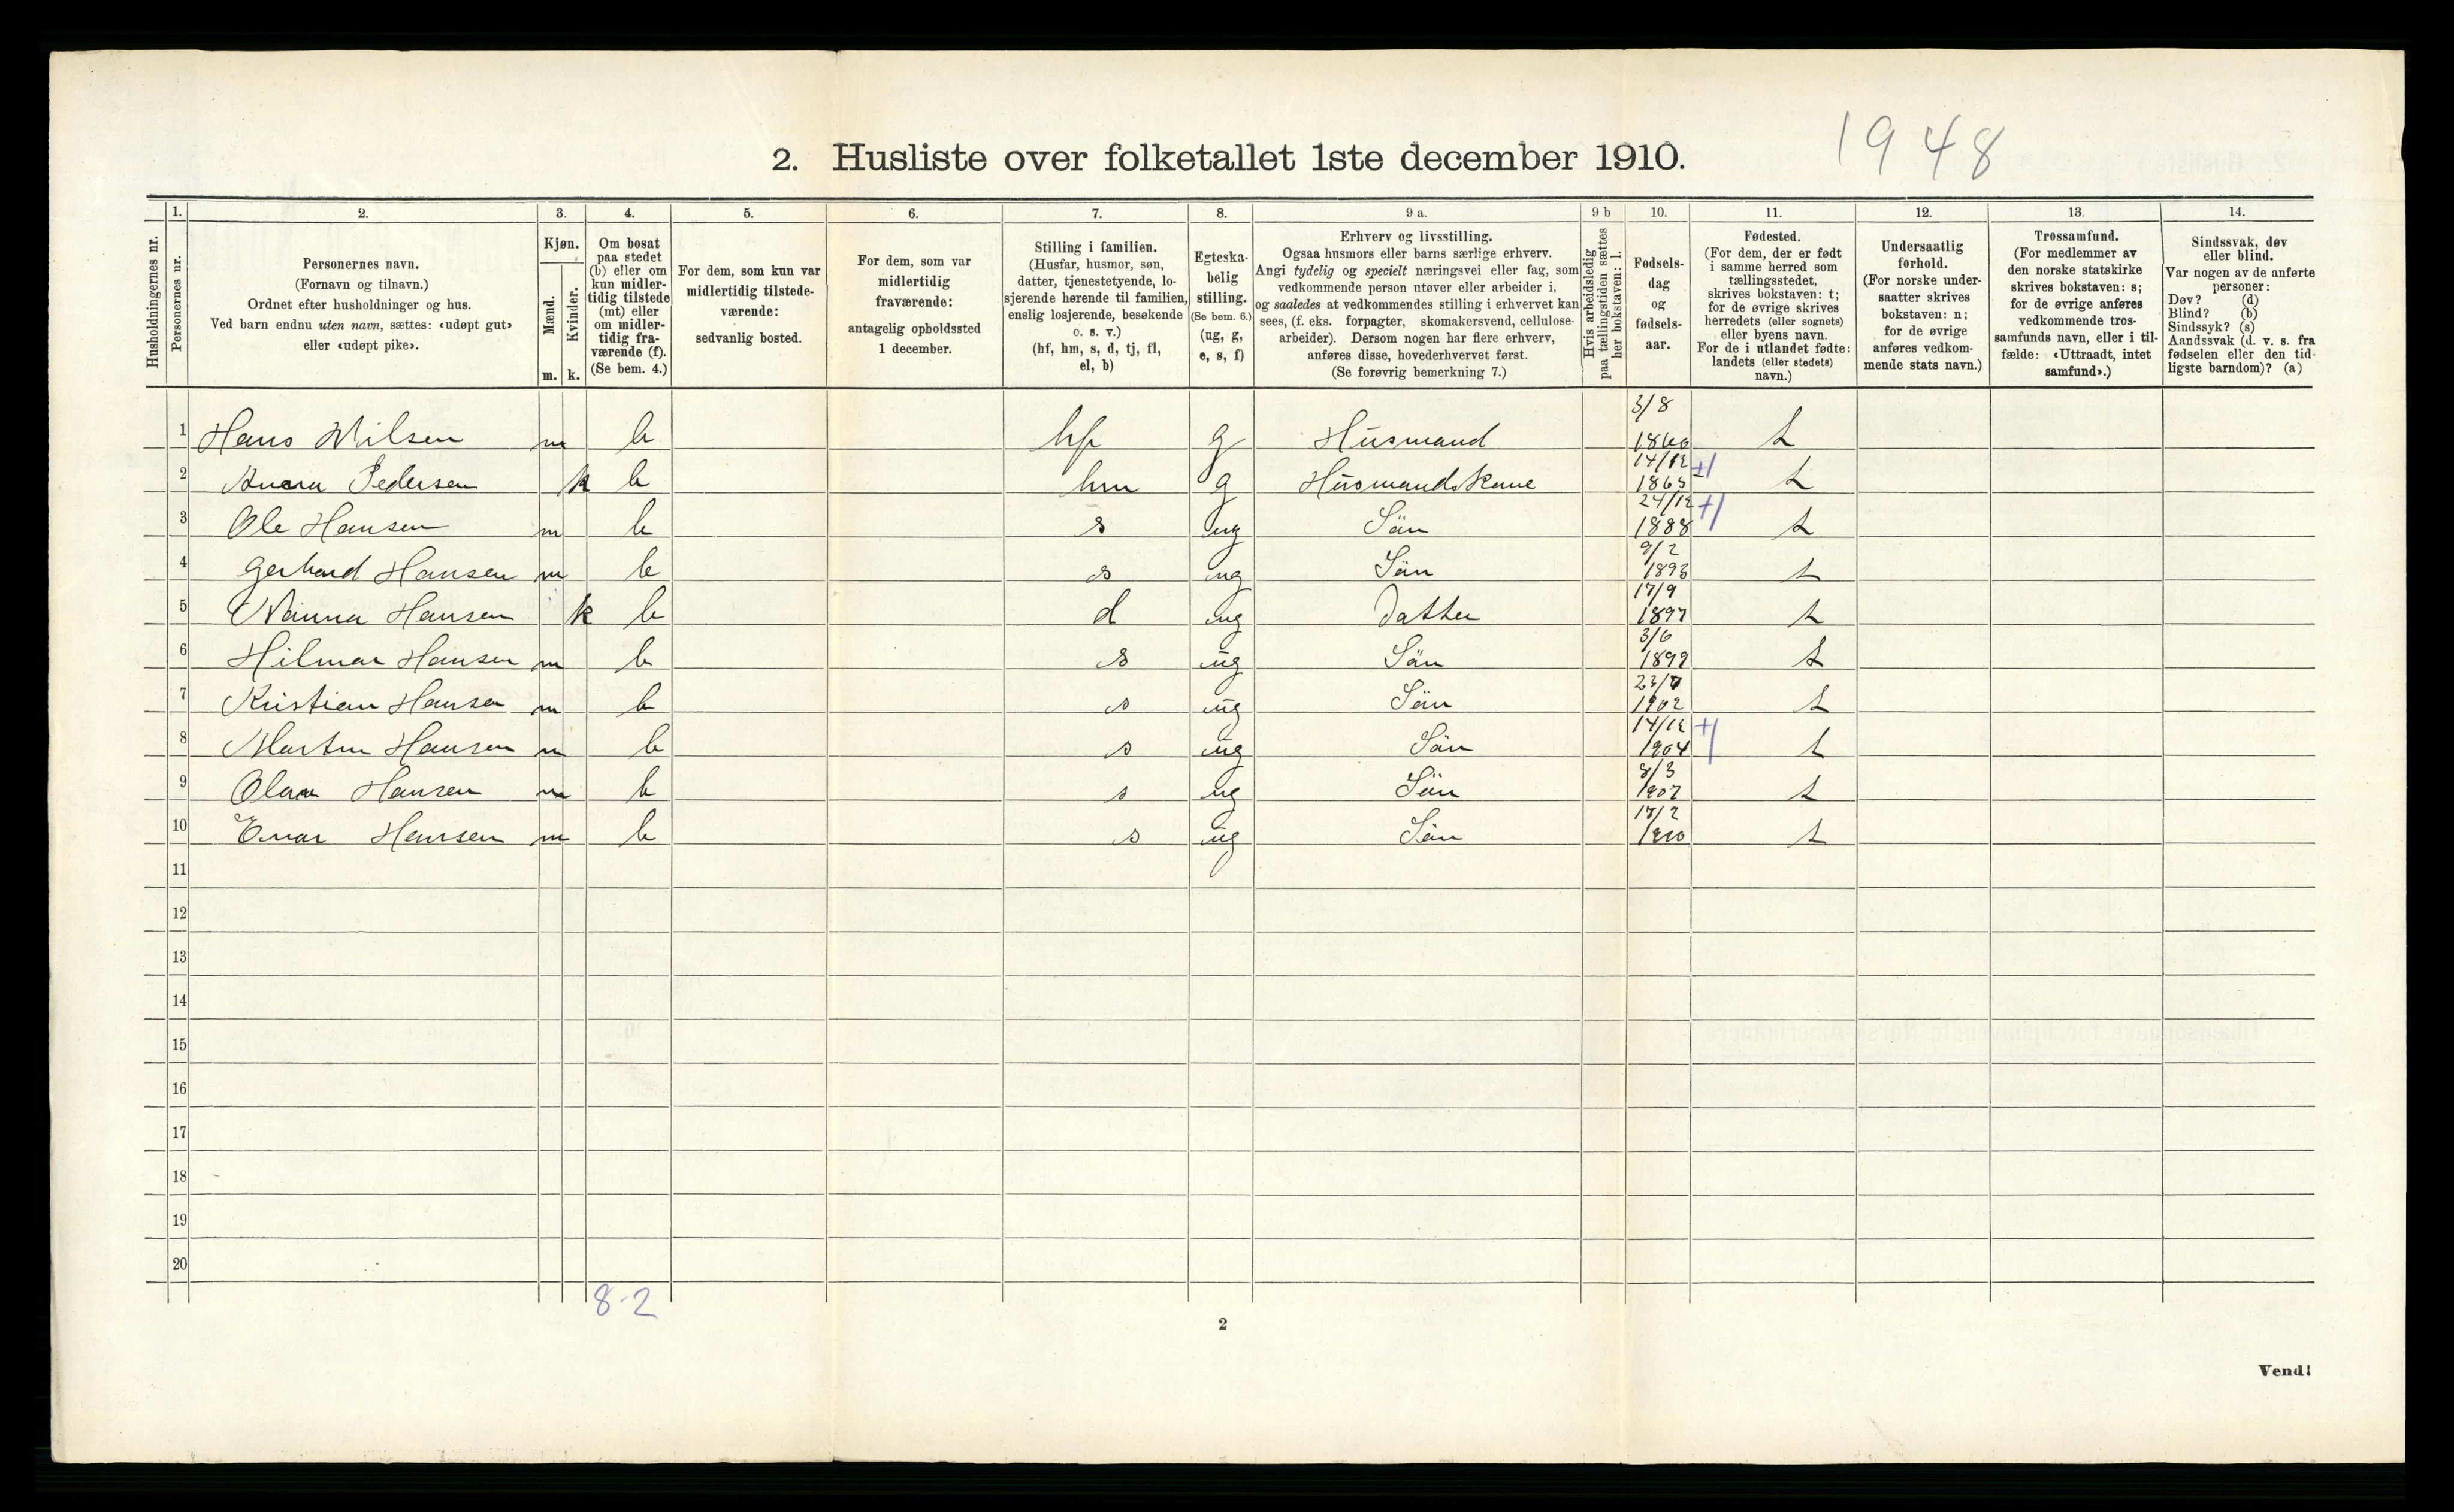 1948
2. Husliste over folketallet 1ste december 1910.
Husholdningernes nr.
1.
Personernes nr.
2.
Personernes navn.
(Fornavn og tilnavn.)
Ordnet efter husholdninger og hus.
Ved barn endnu uten navn, sættes: «udøpt gut»
eller «udøpt pike».
3.
Kjøn.
Mænd.
Kvinder.
m. k.
4.
Om bosat
paa stedet
(b) eller om
kun midler-
tidig tilstede
(mt) eller
om midler-
tidig fra-
værende (f).
(Se bem. 4.)
5.
For dem, som kun var
midlertidig tilstede-
værende:
sedvanlig bosted.
6.
For dem, som var
midlertidig
fraværende:
antagelig opholdssted
1 december.
7.
Stilling i familien.
(Husfar, husmor, søn,
datter, tjenestetyende, lo-
sjerende hørende til familien,
enslig losjerende, besøkende
o. s. v.)
(hf, hm, s, d, tj, fl,
el, b)
8.
Egteska-
belig
stilling.
(Se bem. 6.)
(ug, g,
e, s, f)
9 a.
Erhverv og livsstilling.
Ogsaa husmors eller barns særlige erhverv.
Angi tydelig og specielt næringsvei eller fag, som
vedkommende person utøver eller arbeider i,
og saaledes at vedkommendes stilling i erhvervet kan
sees, (f. eks. forpagter, skomakersvend, cellulose-
arbeider). Dersom nogen har flere erhverv,
anføres disse, hovederhvervet først.
(Se forøvrig bemerkning 7.)
9 b
Hvis arbeidsledig
paa tællingstiden sættes
her bokstaven: l.
10.
Fødsels-
dag
og
fødsels-
aar.
11.
Fødested.
(For dem, der er født
i samme herred som
tællingsstedet,
skrives bokstaven: t;
for de øvrige skrives
herredets (eller sognets)
eller byens navn.
For de i utlandet fødte:
landets (eller stedets)
navn.)
12.
Undersaatlig
forhold.
(For norske under-
saatter skrives
bokstaven: n;
for de øvrige
anføres vedkom-
mende stats navn.)
13.
Trossamfund.
(For medlemmer av
den norske statskirke
skrives bokstaven: s;
for de øvrige anføres
vedkommende tros-
samfunds navn, eller i til-
fælde: «Uttraadt, intet
samfund».)
14.
Sindssvak, døv
eller blind.
Var nogen av de anførte
personer:
Døv? (d)
Blind? (b)
Sindssyk? (s)
Aandssvak (d. v. s. fra
fødselen eller den tid-
ligste barndom)? (a)
1 Hans Nilsen m b hf g Husmand 3/8 1860 t
2 Anna Pedersen k b hm g Husmandskone 14/12 1865 t
3 Ole Hansen m b s ug Sön 24/12 1888 t
4 Gerhard Hansen m b s ug Sön 9/2 1893 t
5 Nanna Hansen k b d ug Datter 17/9 1897 t
6 Hilmar Hansen m b s ug Sön 3/6 1899 t
7 Kristian Hansen m b s ug Sön 23/7 1902 t
8 Martin Hansen m b s ug Sön 14/12 1904 t
9 Hansen m b s ug Sön 8/3 1907 t
10 Einar Hansen m b s ug Sön 17/2 1910 t
11
12
13
14
15
16
17
18
19
20
8-2
2
Vend!